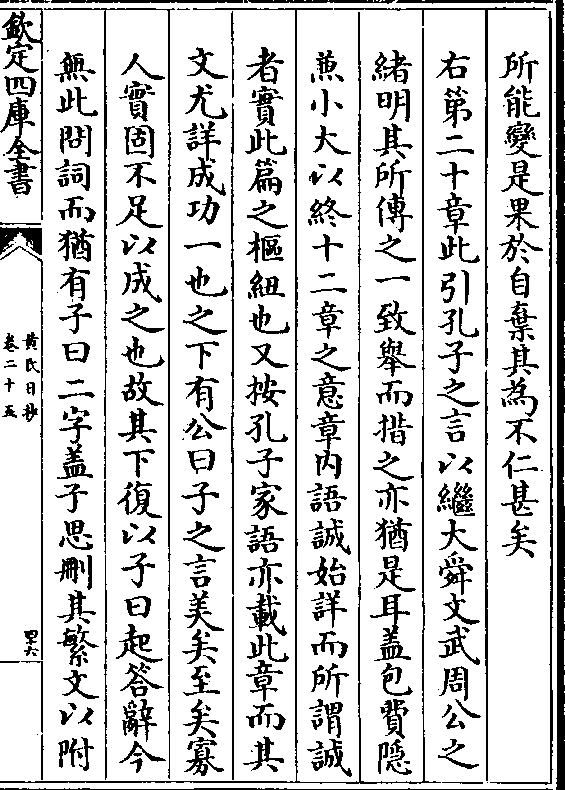 所能變是果於自棄其為不仁甚矣
右第二十章此引孔子之言以繼大舜文武周公之
緒明其所傳之一致舉而措之亦猶是耳蓋包費隠
兼小大以終十二章之意章内語誠始詳而所謂誠
者實此篇之樞紐也又按孔子家語亦載此章而其
文尤詳成功一也之下有公曰子之言美矣至矣寡
人實固不足以成之也故其下復以子曰起答辭今
無此問詞而猶有子曰二字蓋子思刪其繁文以附
欽定四庫全書
黄氏日抄
卷二十五
四十六